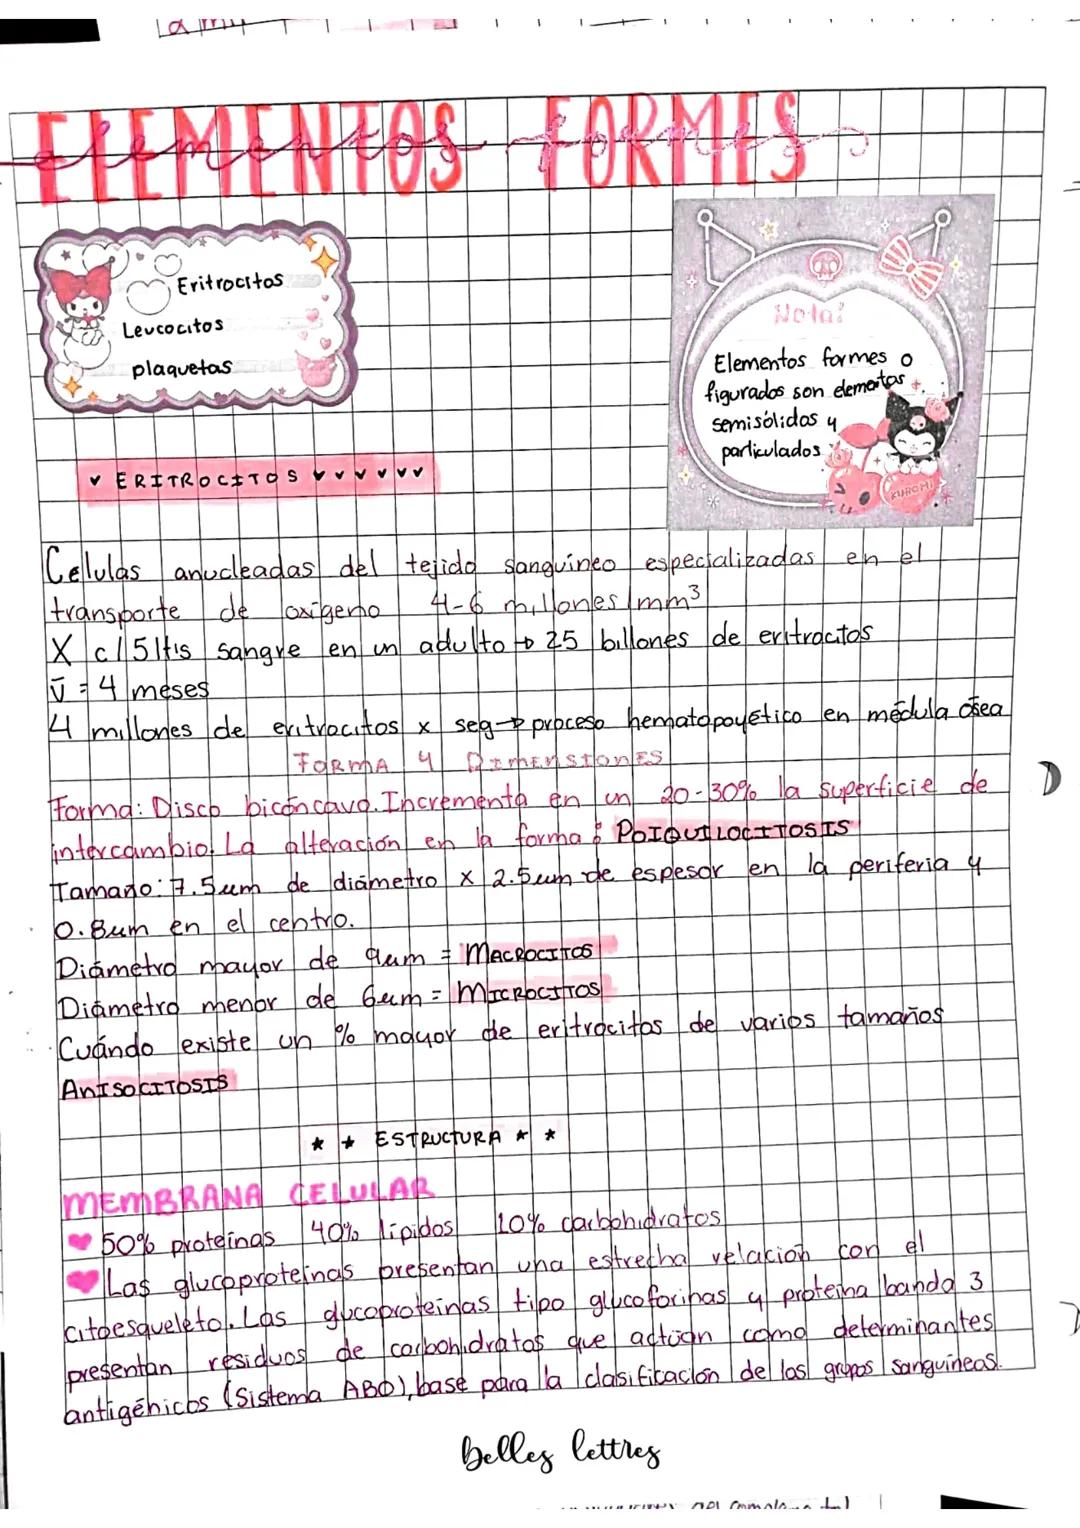 ELEMENTOS FORMES
elementos formes
Eritrocitos
Leucocitos
plaquetas
Hola!
Elementos formes o
figurados son elementos
semisólidos y
particulados
KUROMI
ERITROCITOS
Celulas anucleadas del tejido sanguíneo especializadas en el
transporte de oxigeno 4-6 millones/mm³
X c/5lts sangre en un adulto → 25 billones de eritrocitos
v̄ = 4 meses
4 millones de eritrocitos x seg → proceso hematopoyético en médula ósea
FORMA Y DIMENSIONES
Forma: Disco bicóncavo. Incrementa en un 20-30% la superficie de
intercambio. La alteración en la forma: POIQUILOCITOSIS
Tamaño: 7.5um de diámetro x 2.5um de espesor en la periferia y
0.8um en el centro.
Diámetro mayor de 9um = MACROCITOS
Diámetro menor de 6um = MICROCITOS
Cuándo existe un % mayor de eritrocitos de varios tamaños
ANISOCITOSIS
★ ★ ESTRUCTURA ★ ★
MEMBRANA CELULAR
♥ 50% proteínas 40% lípidos 10% carbohidratos
♥ Las glucoproteínas presentan una estrecha relación con el
citoesqueleto. Las glucoproteínas tipo glucoforinas y proteína banda 3
presentan residuos de carbohidratos que actúan como determinantes
antigénicos (Sistema ABO), base para la clasificación de los grupos sanguíneos.
belles lettres